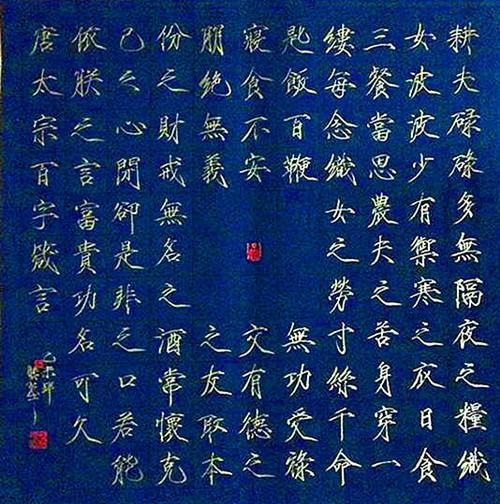 耕夫碌碌多無隔夜之糧織
女波波少有禦寒之衣日食
三餐當思農夫之苦身穿一
縷每念織女之勞寸絲千命
匙飯百鞭無功受祿
寢食不安交有德之
朋絕無義之友取本
份之財戒無名之酒常懷克
己之心閉卻是非之口若能
依朕之言富貴功名可久
唐太宗百字箴言
乙未年